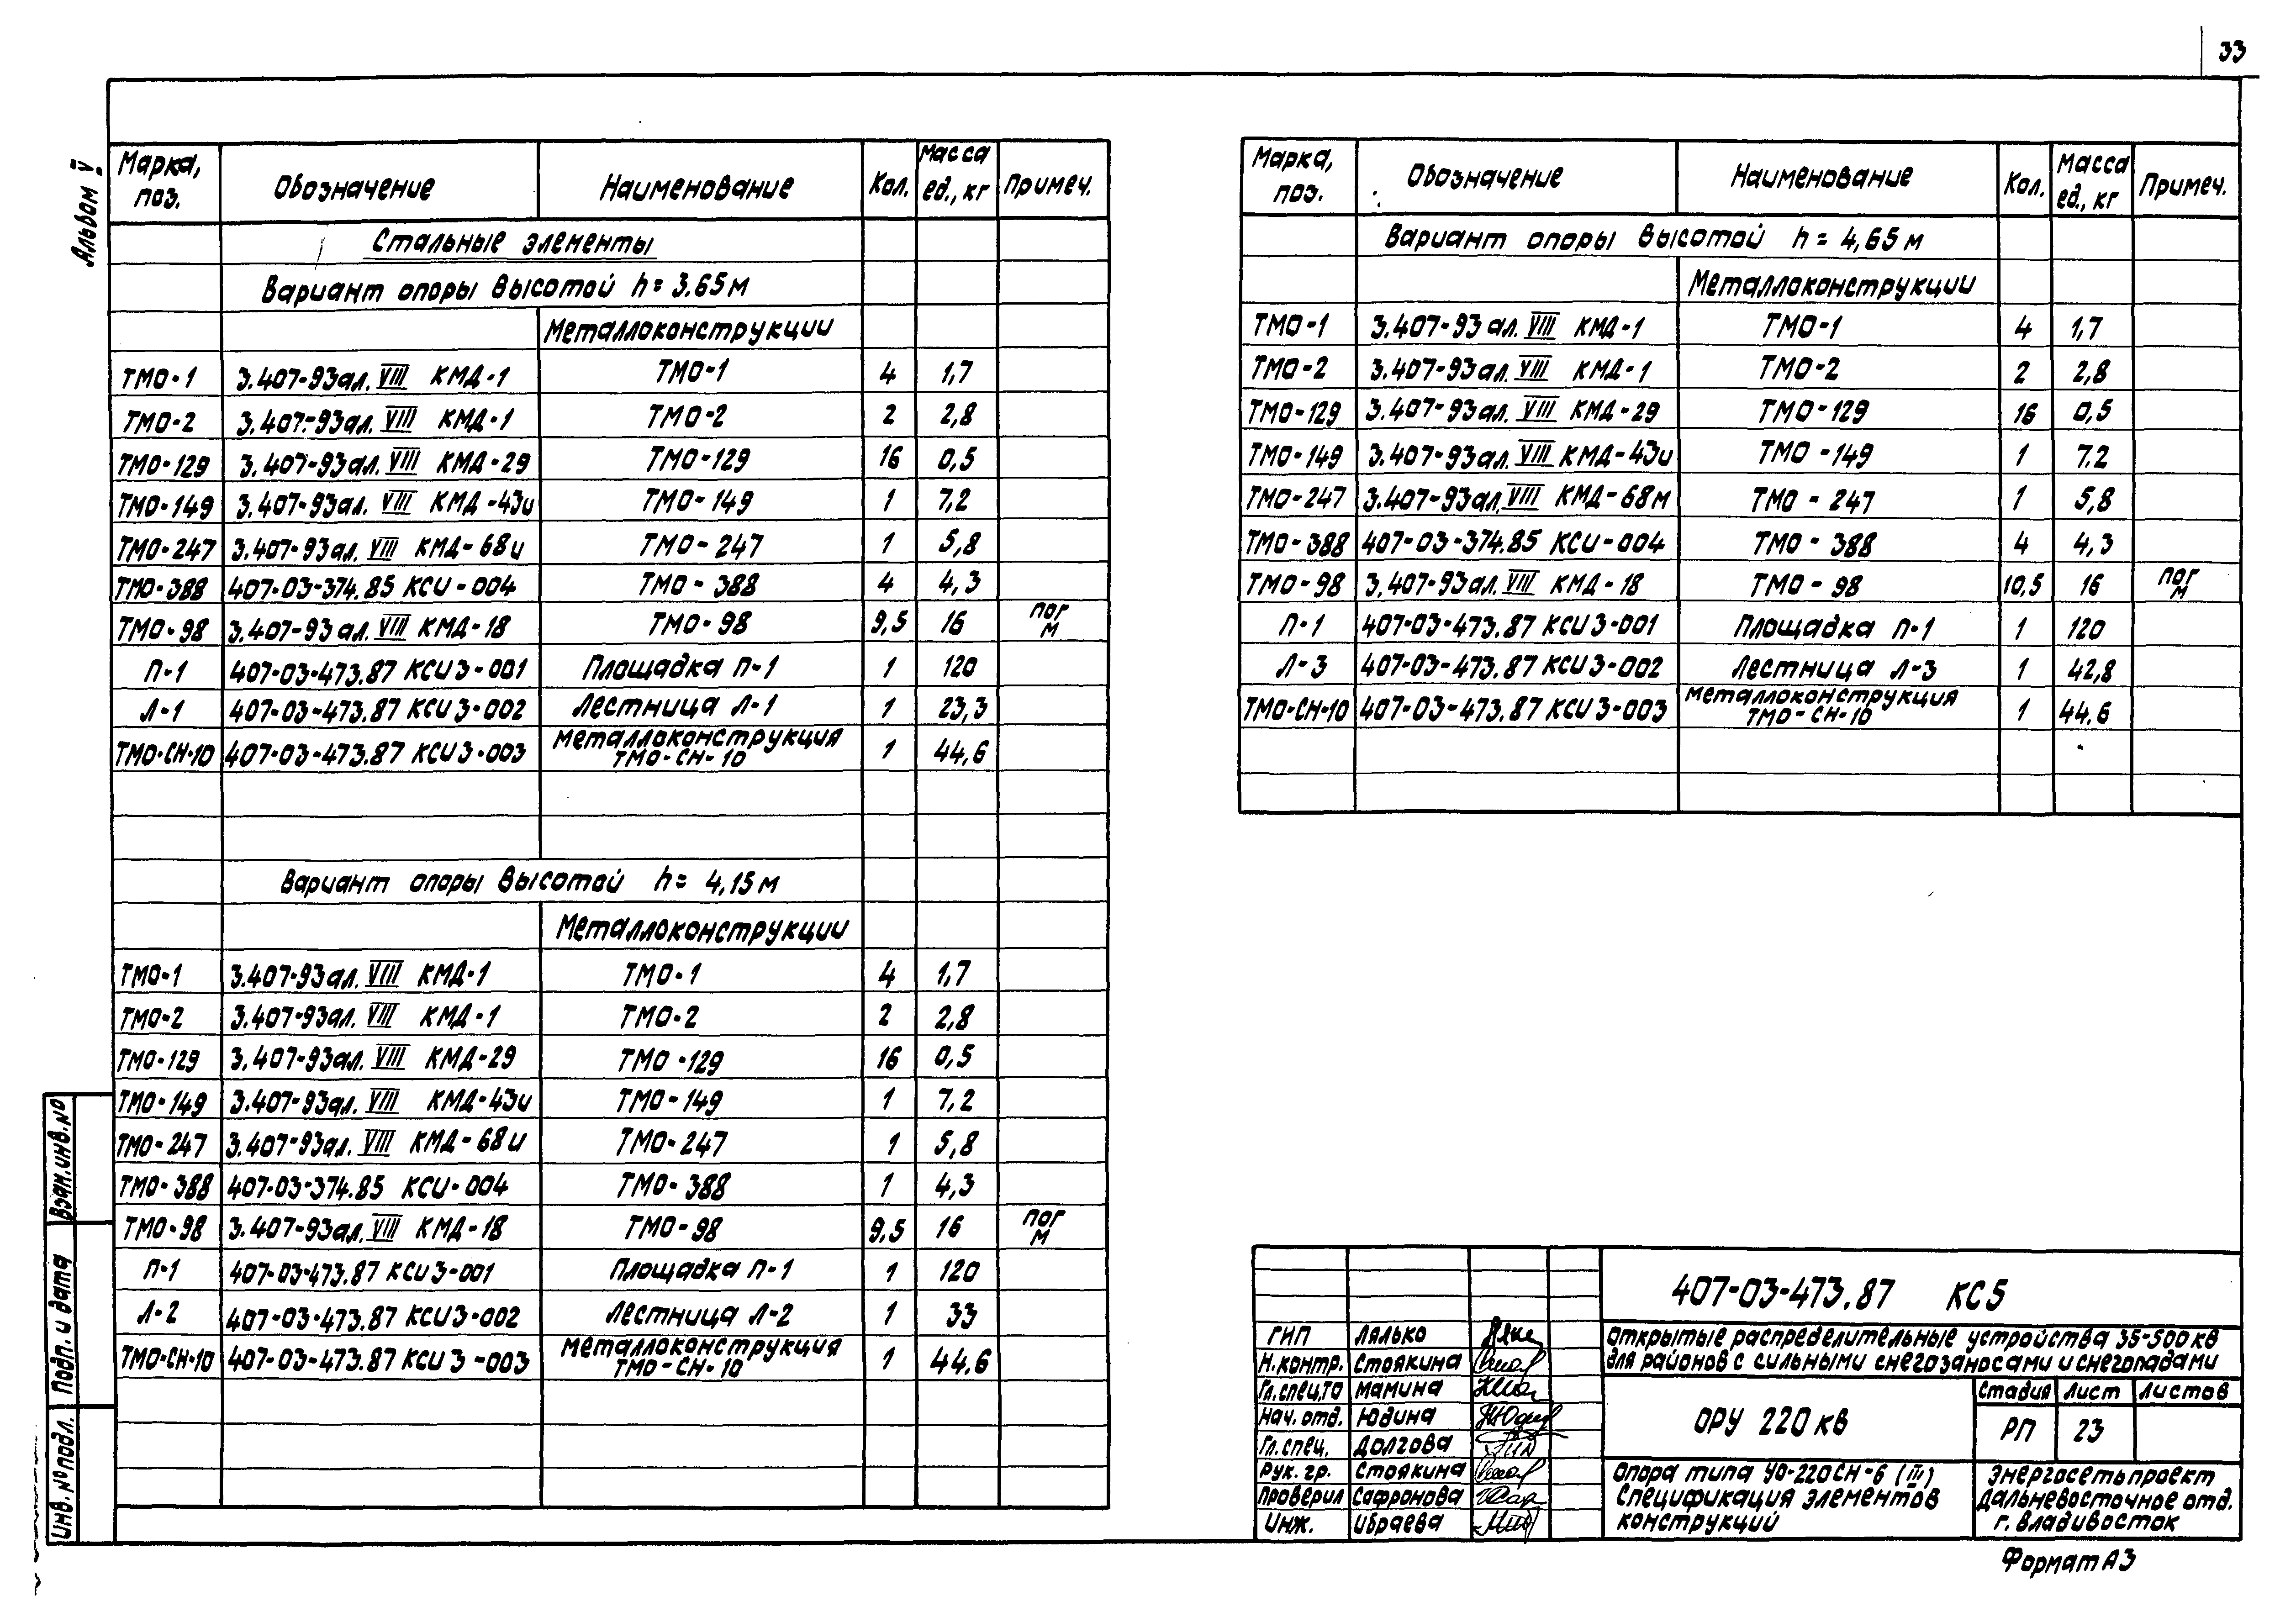 33
Альбом V
Марка, поз. Обозначение Наименование Кол. Масса ед., кг Примеч.
Стальные элементы
Вариант опоры высотой h = 3.65 м
Металлоконструкции
ТМО-1 3.407-93ал. VIII КМД-1 ТМО-1 4 1,7
ТМО-2 3.407-93ал. VIII КМД-1 ТМО-2 2 2,8
ТМО-129 3.407-93ал. VIII КМД-29 ТМО-129 16 0,5
ТМО-149 3.407-93ал. VIII КМД-43и ТМО-149 1 7,2
ТМО-247 3.407-93ал. VIII КМД-68и ТМО-247 1 5,8
ТМО-388 407-03-374.85 КСИ-004 ТМО-388 4 4,3
ТМО-98 3.407-93ал. VIII КМД-18 ТМО-98 9,5 16 пог м
П-1 407-03-473.87 КСИ3-001 Площадка П-1 1 120
Л-1 407-03-473.87 КСИ3-002 Лестница Л-1 1 23,3
ТМО-СН-10 407-03-473.87 КСИ3-003 Металлоконструкция ТМО-СН-10 1 44,6
Вариант опоры высотой h = 4,15 м
Металлоконструкции
ТМО-1 3.407-93ал. VIII КМД-1 ТМО-1 4 1,7
ТМО-2 3.407-93ал. VIII КМД-1 ТМО-2 2 2,8
ТМО-129 3.407-93ал. VIII КМД-29 ТМО-129 16 0,5
ТМО-149 3.407-93ал. VIII КМД-43и ТМО-149 1 7,2
ТМО-247 3.407-93ал. VIII КМД-68и ТМО-247 1 5,8
ТМО-388 407-03-374.85 КСИ-004 ТМО-388 1 4,3
ТМО-98 3.407-93ал. VIII КМД-18 ТМО-98 9,5 16 пог м
П-1 407-03-473.87 КСИ3-001 Площадка П-1 1 120
Л-2 407-03-473.87 КСИ3-002 Лестница Л-2 1 33
ТМО-СН-10 407-03-473.87 КСИ3-003 Металлоконструкция ТМО-СН-10 1 44,6
Марка, поз. Обозначение Наименование Кол. Масса ед., кг Примеч.
Вариант опоры высотой h = 4,65 м
Металлоконструкции
ТМО-1 3.407-93ал. VIII КМД-1 ТМО-1 4 1,7
ТМО-2 3.407-93ал. VIII КМД-1 ТМО-2 2 2,8
ТМО-129 3.407-93ал. VIII КМД-29 ТМО-129 16 0,5
ТМО-149 3.407-93ал. VIII КМД-43и ТМО-149 1 7.2
ТМО-247 3.407-93ал. VIII КМД-68м ТМО-247 1 5,8
ТМО-388 407-03-374.85 КСИ-004 ТМО-388 4 4,3
ТМО-98 3.407-93ал. VIII КМД-18 ТМО-98 10,5 16 пог м
П-1 407-03-473.87 КСИ3-001 Площадка П-1 1 120
Л-3 407-03-473.87 КСИ3-002 Лестница Л-3 1 42,8
ТМО-СН-10 407-03-473.87 КСИ3-003 Металлоконструкция ТМО-СН-10 1 44.6
Взам.инв.№
Подп. и дата
Инв. № подл.
407-03-473.87 КС5
ГИП Лялько
Н.контр. Стоякина
Гл.спец.ТО Мамина
Нач. отд. Юдина
Гл. спец. Долгова
Рук. гр. Стоякина
Проверил Сафронова
Инж. Ибраева
Открытые распределительные устройства 35-500 кв
для районов с сильными снегозаносами и снегопадами
ОРУ 220 кв
Стадия Лист Листов
РП 23
Опора типа УО-220СН-6 (III)
Спецификация элементов
конструкций
Энергосетьпроект
Дальневосточное отд.
г. Владивосток
Формат А3